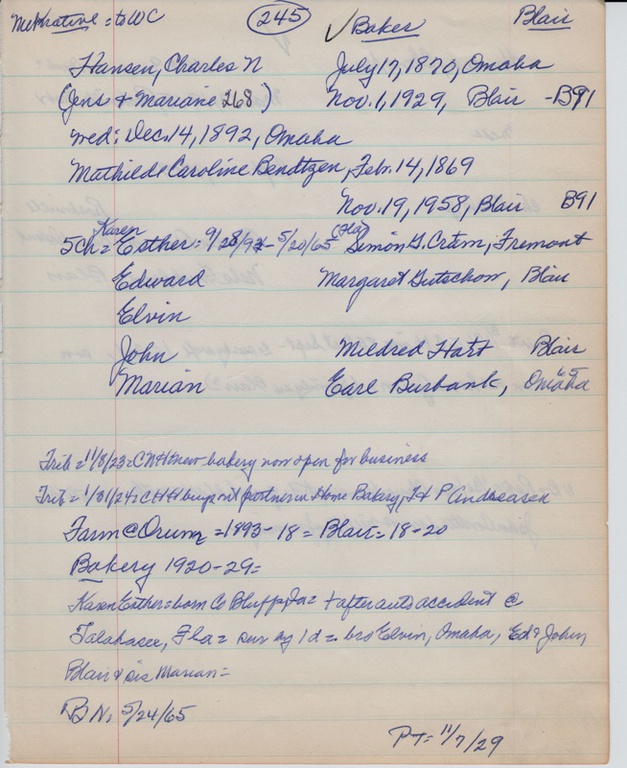 = to WC (245) ✓Baker Blair
Hansen, Charles N July 17, 1870, Omaha
(Jens + Mariane 268) Nov. 1, 1929, Blair - B91
wed: Dec. 14, 1892, Omaha
Mathilde Caroline Bendtzen, Feb. 14, 1869
Nov. 19, 1958, Blair B91
Karen
5ch = Esther = 9/28/94 - 5/20/65 (Fla) Simon G. Crum, Fremont
Edward Margaret Gutschow, Blair
Elvin
John Mildred Hart Blair
Marian Earl Burbank, Omaha
Trib = 11/8/23 = CNH new bakery now open for business
Trib = 1/31/24 = CNH buys out partner in Home Bakery, H P Andreasen
Farm @ Orum = 1893-18 = Blair = 18-20
Bakery 1920-29 =
Karen Esther = born Co Bluffs, Ia = + after auto accident @
Talahasee, Fla = sur by 1 d = bro Elvin, Omaha, Ed + John,
Blair + sis Marian =
BN, 5/24/65
PT = 11/7/29